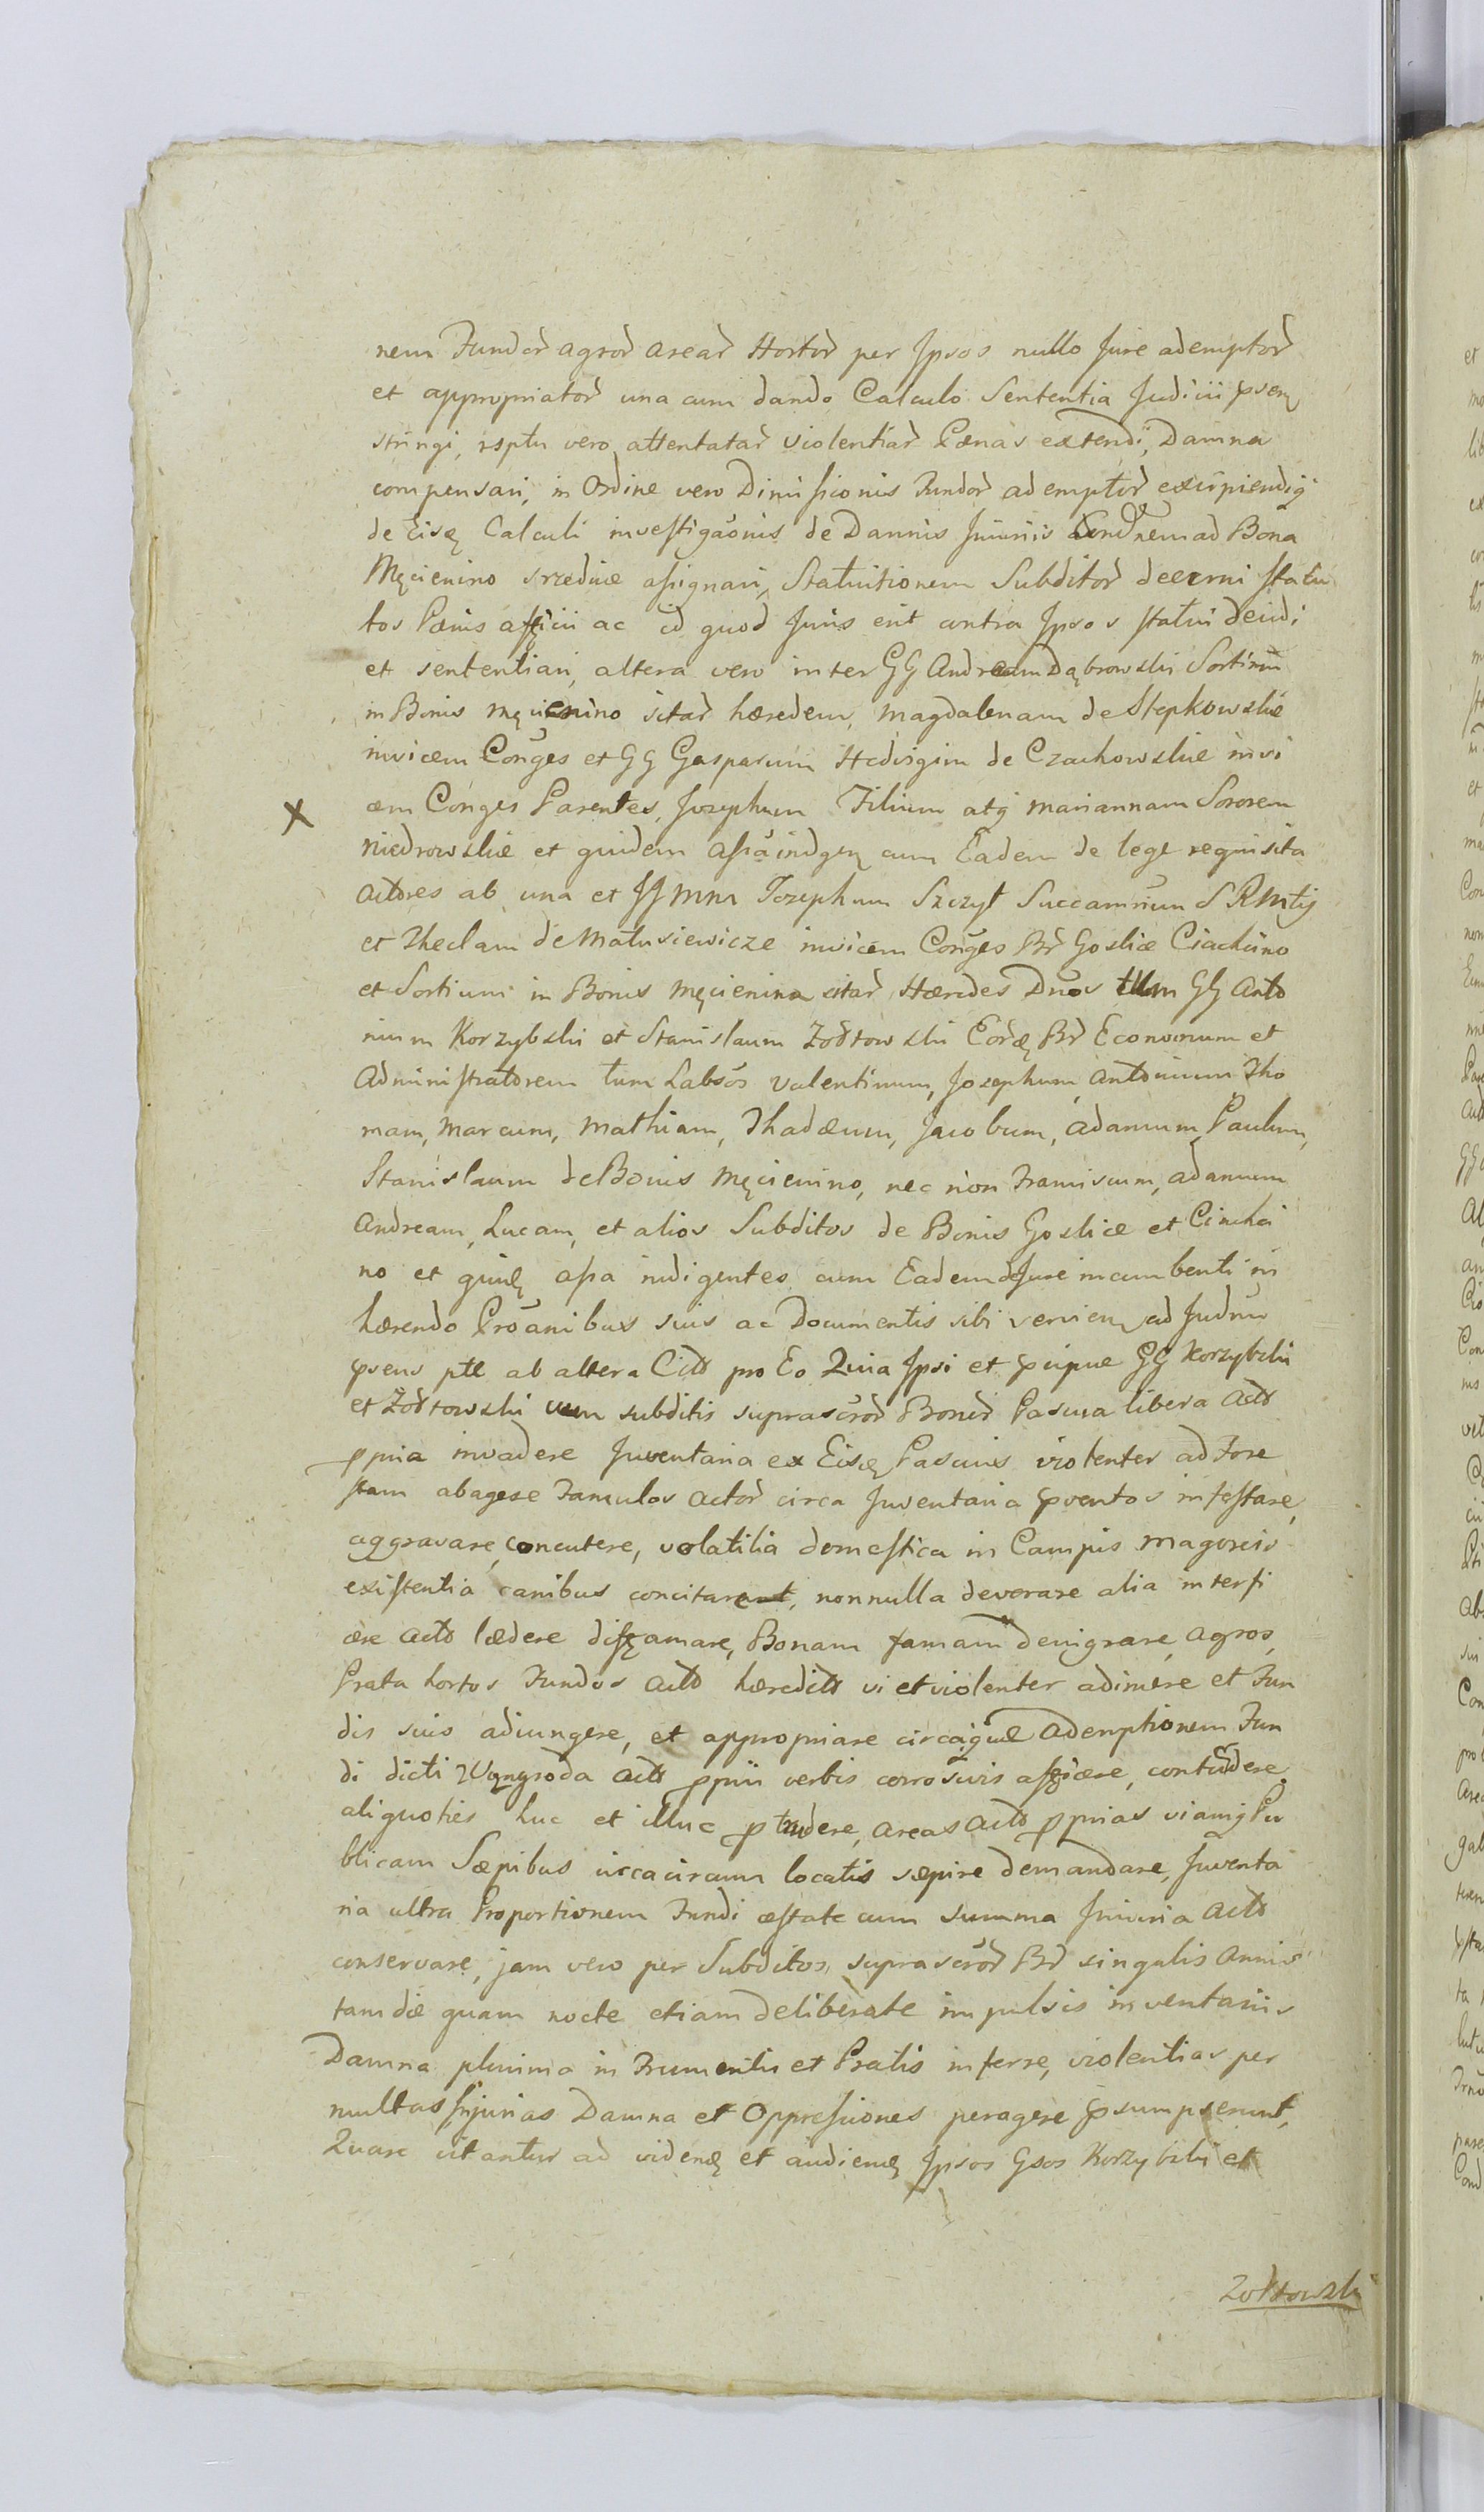 nem Fundor agror arear Hortor per Ipsos nullo Jure ademptor
et appropriator una cum dando Calculo Sententia Judicii psen
stringi, rsptu vero attentatar violentiar Pænas extendi, Damna
compensari, in Ordine vero Dimissionis Fundor ademptor excipiendiq
de Eisq Calculi investigaonis de Damnis Injuriis ad Bona
Męcienino srzednie assignari, Statuitionem Subditor decerni statu
tos Pænis affici ac id quod Juris erit contra Ipsos statui decidi
et sententiari, altera vero inter GG Andream Dąbrowski Sortium
in Bonis Męcienino sitar hæredem, Magdalenam de Stępkowskie
invicem Conges et GG Gasparum Hedvigim de Czachowskie invi
X cem Conges Parentes, Josephum Filium atq Mariannam Sororem
Niedrowskie et quidem assa indgen cum Eadem de lege requisita
Actores ab una et JJ MM Josephum Szczyt Succamrium S R Mtis
et Theclam de Matusiewicze invicem Conges Br Goslice Ciachcino
et Sortium in Bonis Męcienino sitar Hæredes Dnos tum GG Anto
nium Korzybski et Stanislaum Zołtowski Eorq Br Economum et
Administratorem tum Labsos Valentinum, Josephum, Antonium Tho
mam, Marcum, Mathiam, Thadæum, Jacobum, Adamum, Paulum,
Stanislaum de Bonis Męcienino, nec non Franciscum, Adamum
Andream, Lucam, et alios Subditos de Bonis Goslice et Ciachci
no et assa indigentes cum Eadem de Jure incumbenti in
hærendo Proanibus suis ac Documentis sibi servien ad Judm
psens ptt ab altera Citt pro Eo Quia Ipsi et pcipue GG Korzybski
et Zołtowski cum subditis suprascror Bonor Pascua libera Actt
ppria invadere Juventaria ex Eisq Pascuis violenter ad Fore
stam abagere Famulos Actor circa Juventaria pventos infestare,
aggravare, concutere, volatilia domestica in Campis magoreis
existentia canibus concitare, nonnulla devorare alia interfi
cere Actt lædere diffamare, Bonam famam denigrare, agros,
Prata hortos Fundos Actt heredit vi et violenter adimere et Fun
dis suis adiungere, et appropriare circa ademptionem Fun
di dicti Wyngroda Actt pprii verbis corrosivis afficere, contundere
aliquoties huc et illuc ptrudere, areas Actt pprias viamq Pu
blicam Sæpibus circacircum locatis sæpire demandare, Juventa
ria ultra Proportionem Fundi æstate cum summa Injuria Actt
conservare, jam vero per Subditos suprascror Br singulis Annis
tam die quam nocte etiam deliberate impulsis inventariis
Damna plurima in Frumentis et Pratis inferre, violentias per
multas Injurias Damna et Oppressiones peragere psumpserunt,
Quare citantur ad videnq et audienq Ipsos Gsos Korzybski et
Zołtowski